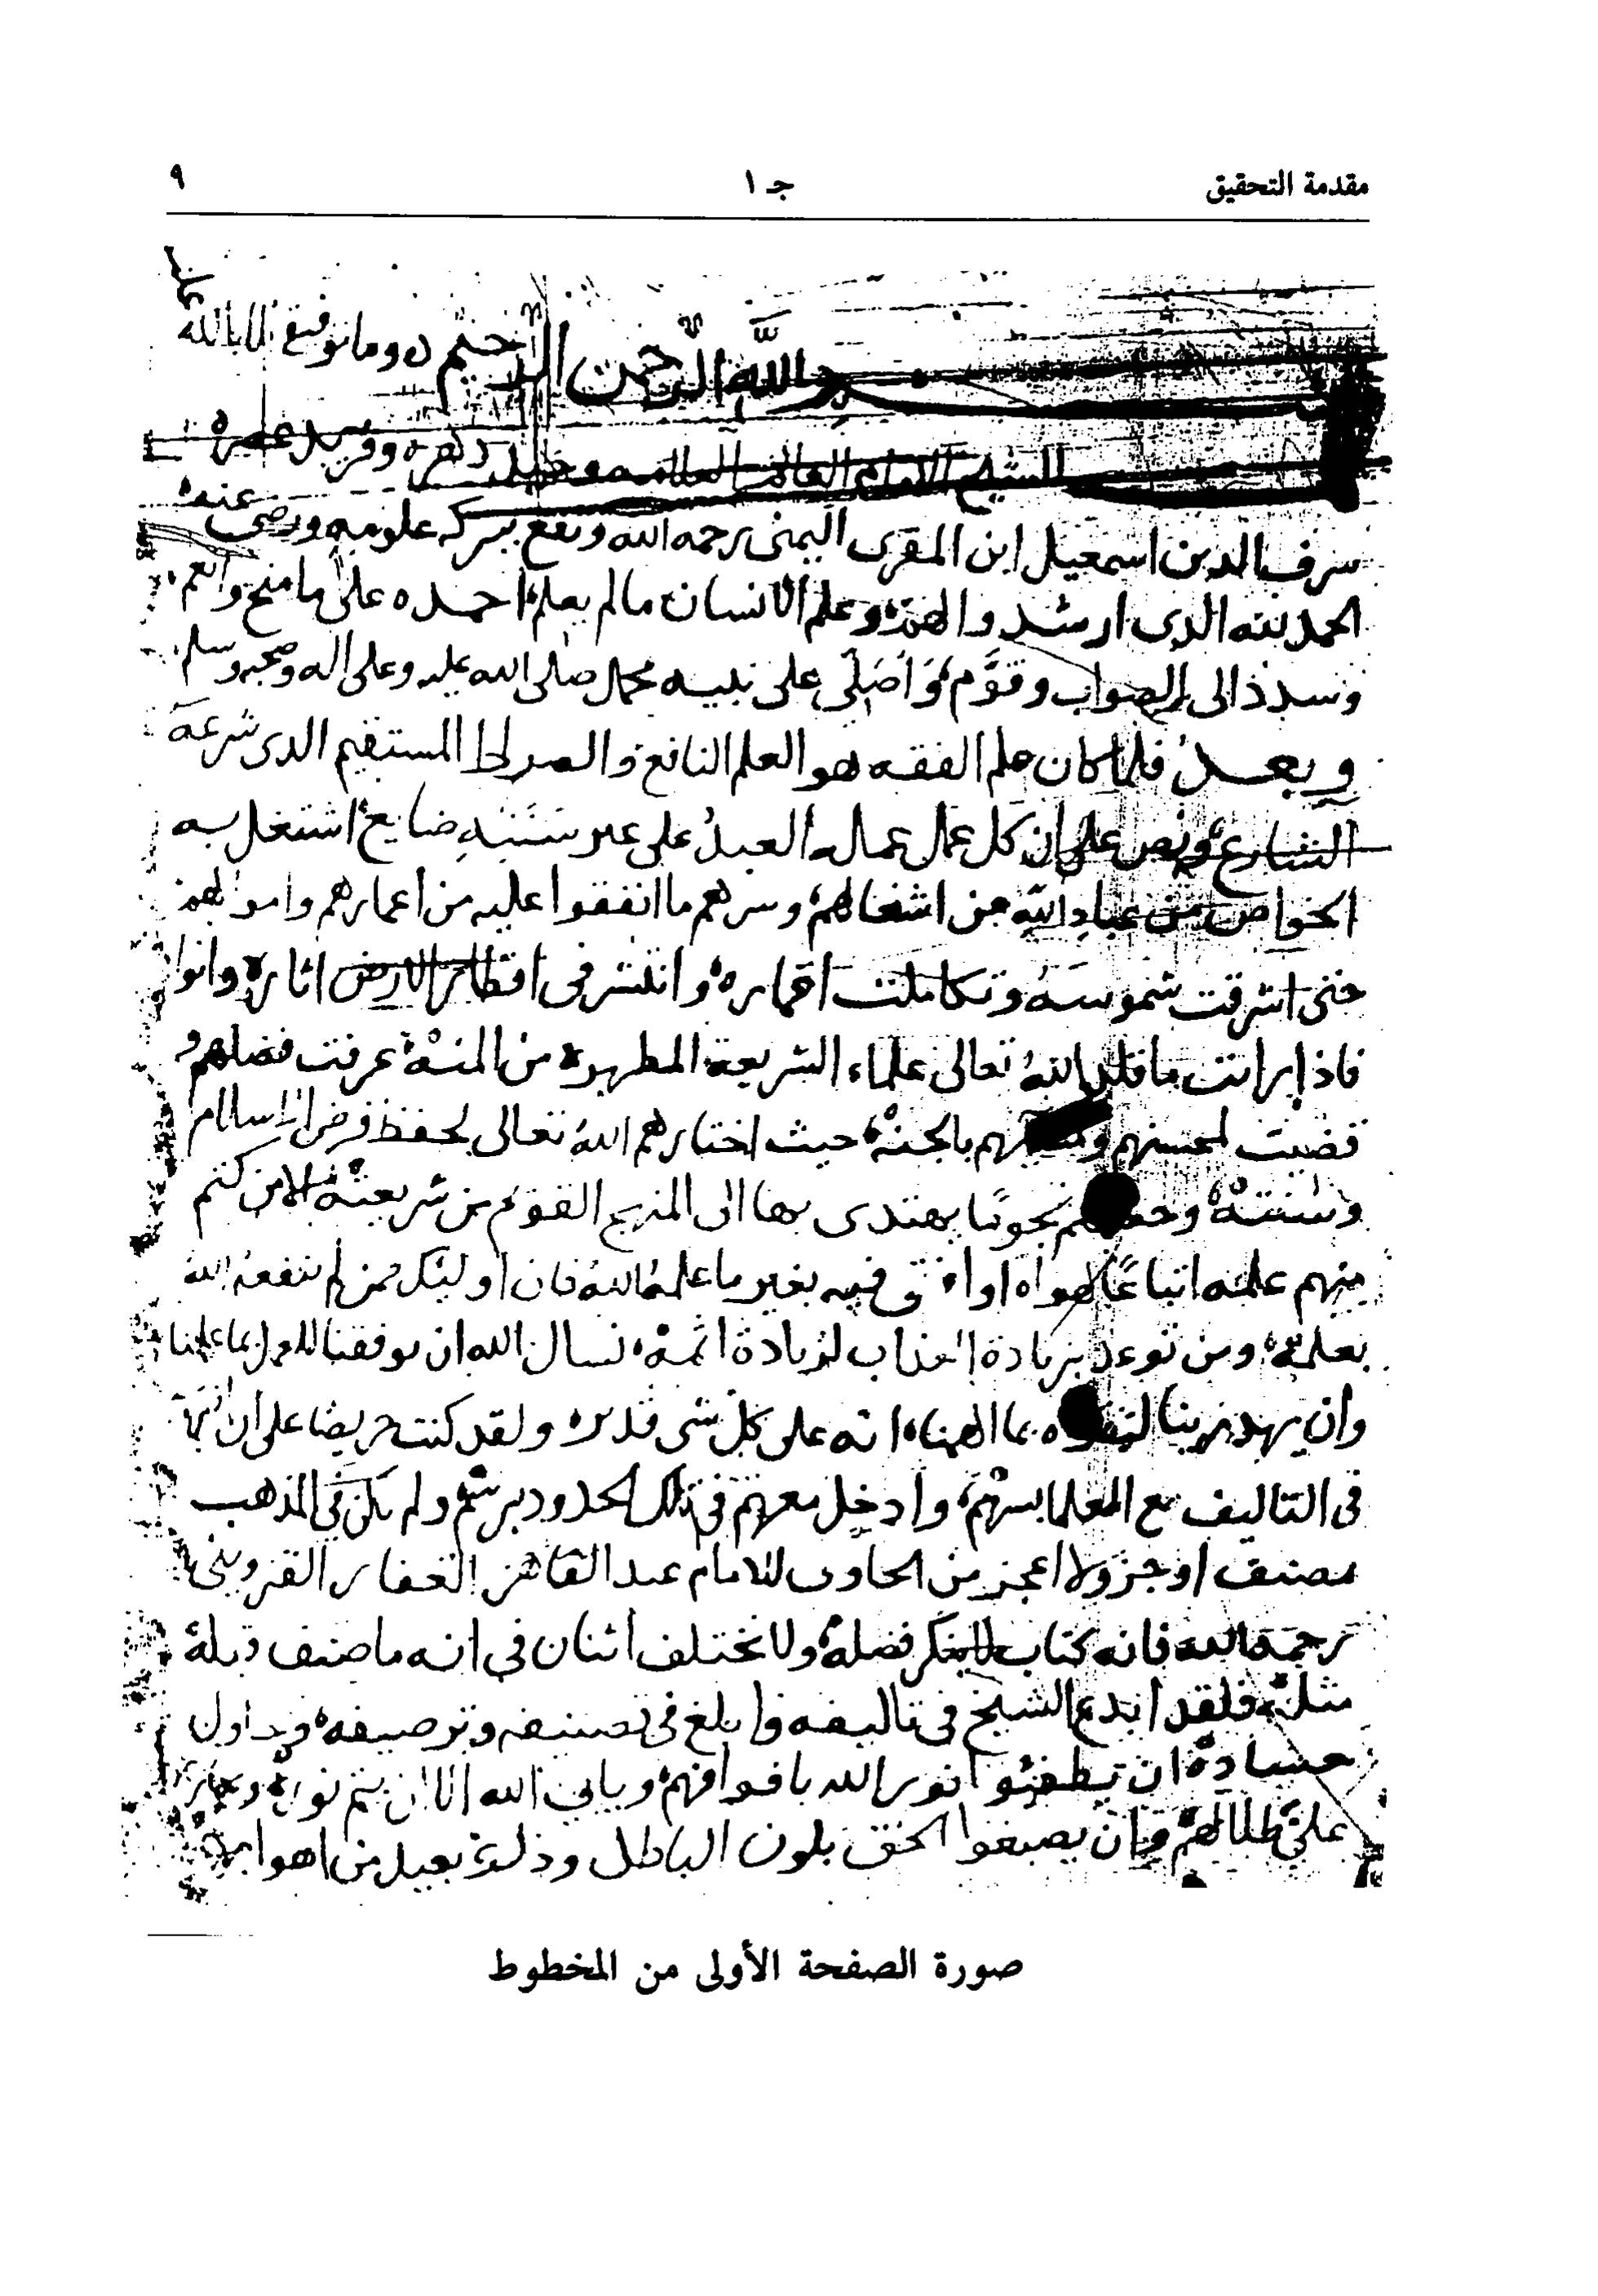 مقدمة التحقيق
جـ ١
٩
بسم الله الرحمن الرحيم وما توفيقي الا بالله
الشيخ الامام العالم العلامه وحيد دهره وفريد عصره
شرف الدين اسمعيل ابن المقرى اليمنى رحمه الله ونفع ببركه علومه ورضى عنه
الحمد لله الذى ارشد والهم وعلم الانسان مالم يعلم احمده على ما منح وانعم
وسدد الى الصواب وقوّم وَاُصَلّى على نبيه محمد صلى الله عليه وعلى اله وصحبه وسلم
وبعد فلما كان علم الفقه هو العلم النافع والصراط المستقيم الذى شرعه
الشارع ونص على ان كل عمل عمله العبد على غير سننه ضايع اشتغل به
الخواص من عباد الله عن اشغالهم وسرهم ما انفقوا عليه من اعمارهم واموالهم
حتى اشرقت شموسه وتكاملت اقماره وانتشر فى اقطار الارض اثاره وانوا
فاذا رايت ما قلد الله تعالى علماء الشريعة المطهره من المنة عرفت فضلهم و
قضيت لمحسنهم بالجنة حيث اختارهم الله تعالى لحفظ فرض الاسلام
وسنته نجوما يهتدى بها الى المنهج القويم من شريعته الا من كتم
منهم علمه اتباعًا لهواه او افتى فيه بغير ما علمه الله فان اوليك ممن لم ينفعه الله
بعلمه ومن توعد بزيادة العذاب لزيادة اثمه نسال الله ان يوفقنا للعمل بما علمنا
وان يهدينا بما الهمناه انه على كل شى قدير ولقد كنت حريصا على ان
فى التاليف مع العلما بسهم وادخل معهم فى تلك الحدود برسم ولم يكن فى المذهب
مصنف اوجز ولا اعجز من الحاوى للامام عبد الغفار القزوينى
رحمه الله فانه كتاب لا ينكر فضله ولا يختلف اثنان فى انه ما صنف قبله
مثله فلقد ابدع الشيخ فى تاليفه وابلغ فى تصنيفه وترصيفه وحاول
حساده ان يطفئوا نور الله بافواههم ويابى الله الا ان يتم نوره
وان يصبغوا الحق بلون الباطل وذلك بعيد من اهوا
صورة الصفحة الأولى من المخطوط